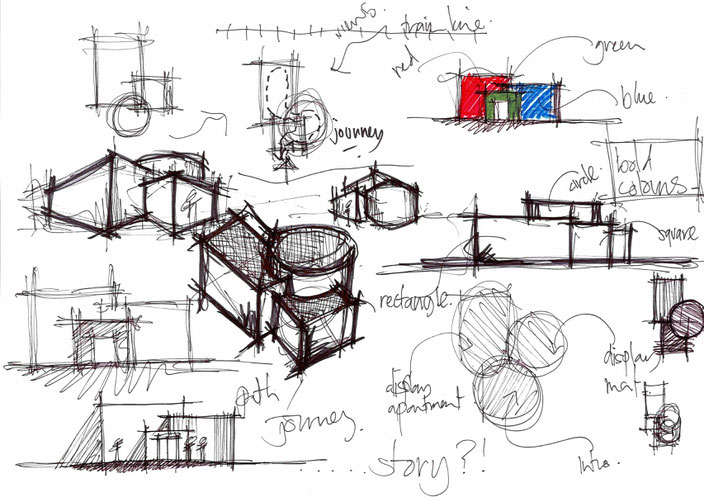 train line.
green
red
blue.
journey
bold
colours
circle
square
rectangle.
display
apartment
display
mat
path
journey.
story?!
intro.